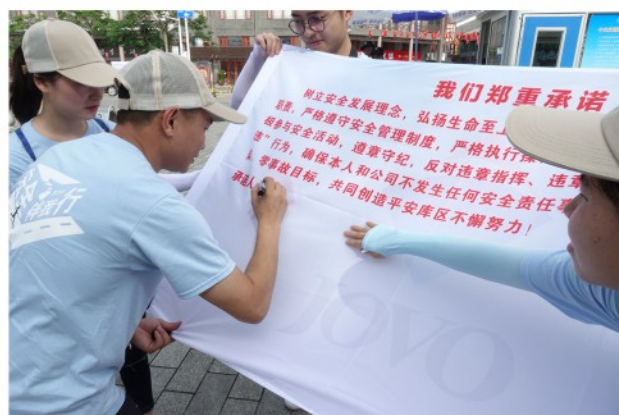 我们郑重承诺
树立安全发展理念，弘扬生命至上
职责，严格遵守安全管理制度，严格执行
极参与安全活动，遵章守纪，反对违章指挥、违章
违”行为，确保本人和公司不发生任何安全责任事
零事故目标，共同创造平安库区不懈努力！
承诺人
JOVO